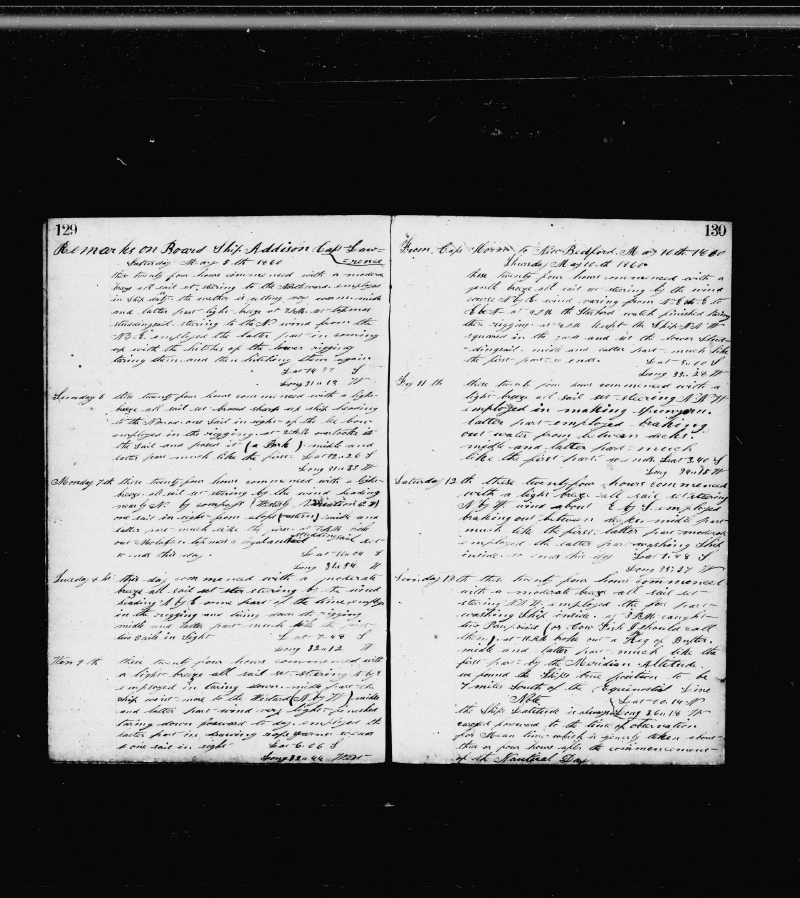 129
Remarks on Board Ship Addison Cap Law=
=rence
Saturday May 5th 1860
these twenty four hours commenced with a modera
breze all sail set stering to the Northward employed
in Ship duty the wether is gitting very warm midle
and latter part light breze at 2 P.M. set topmas
studdingsail stering to the Nd wind from the
N.E. employed the latter part in coming
up with the hitches of the lower rigging
taring them and then hitching them again
Lat 14.37 S
Long 31..18 W
Sunday 6 these twenty four hours commenced with a light
breze all sail set braced sharp up ship heading
to the Nd one Sail in sight of the lee bow
employed in the rigging at 2 P.M. overtook
the Sail and passed it (a Bark) midle and
latter part much like the first Lat 12..26 S
Long 31..33 W
Monday 7th these twenty four hours commenced with a light
breze all sail set stering by the wind heading
nearly N. by compass
one sail in sight from aloft (astern) midle and
latter part much like the first at
out
so ends this day. Lat 10..04 S
Long 31..54 W
Tuesday 8th this day commenced with a moderate
breze all sail set stering by the wind
heading N by E some part of the time employed
in the rigging and tiring down the rigging
midle and latter part much like the first
two Sails in Sight Lat 7..48 S
Long 32..12 W
Wen 9th these twenty four hours commenced with
a light breze all sail set stering N by E
employed in taring down midle part the
ship went more to the Westard (N. by W) midle
and latter part wind very light finished
taring down forward to day employed the
latter part in drawing rope yarns so ends
1 one sail in sight Lat 6..06 S
Long 32..44 West
130
From Cape Horn to New Bedford May 10th 1860
Thursday May 10th 1860
these twenty four hours commenced with a
gentle breze all sail set stering by the wind
course N by E wind varing from N.E. to E. to
E by N at 4 P.M. the Starbord watch finished taring
thire rigging at 4 P.M. kept the Ship N.N.W
squared in the yards and set the lower Stud=
=dingsail midle and latter part much like
the first part so ends. Lat 5..00 S
Long 33..24 W
Fry 11th these twenty four hours commenced with a
light breze all sail set stering N.N.W
employed in making Spunyarn.
latter part employed braking
out water from between decks.
midle and latter part much
like the first part. so ends Lat 3.40 S
Long 34..15 W
Saturday 12th these twenty four hours commenced
with a light breze all sail set stering
N by W wind about E by S employed
braking out between decks midle part
much like the first. latter part moderate
employed the latter part washing Ship
inside. so ends this day Lat 1..48 S
Long 35..37 W
Sunday 13th these twenty four hours commenced
with a moderate breze. all sail set
stering N.N.W. employed the for part
washing Ship inside. at 3 P.M. caught
two Porpoises (or Cow Fish I should call
them). at 11 A.M. broke out a Keg of Butter.
midle and latter part much like the
first part by the Meridian Altitude.
we found the Ships true position to be
7 miles South of the Equinoctial Line
Note Lat 00.14 S
the Ships Latitude is always Long 36..18 W
carred forward to the time of observation
for Mean time which is generly taken about
three or four hours after the commencement
of the Nautical Day